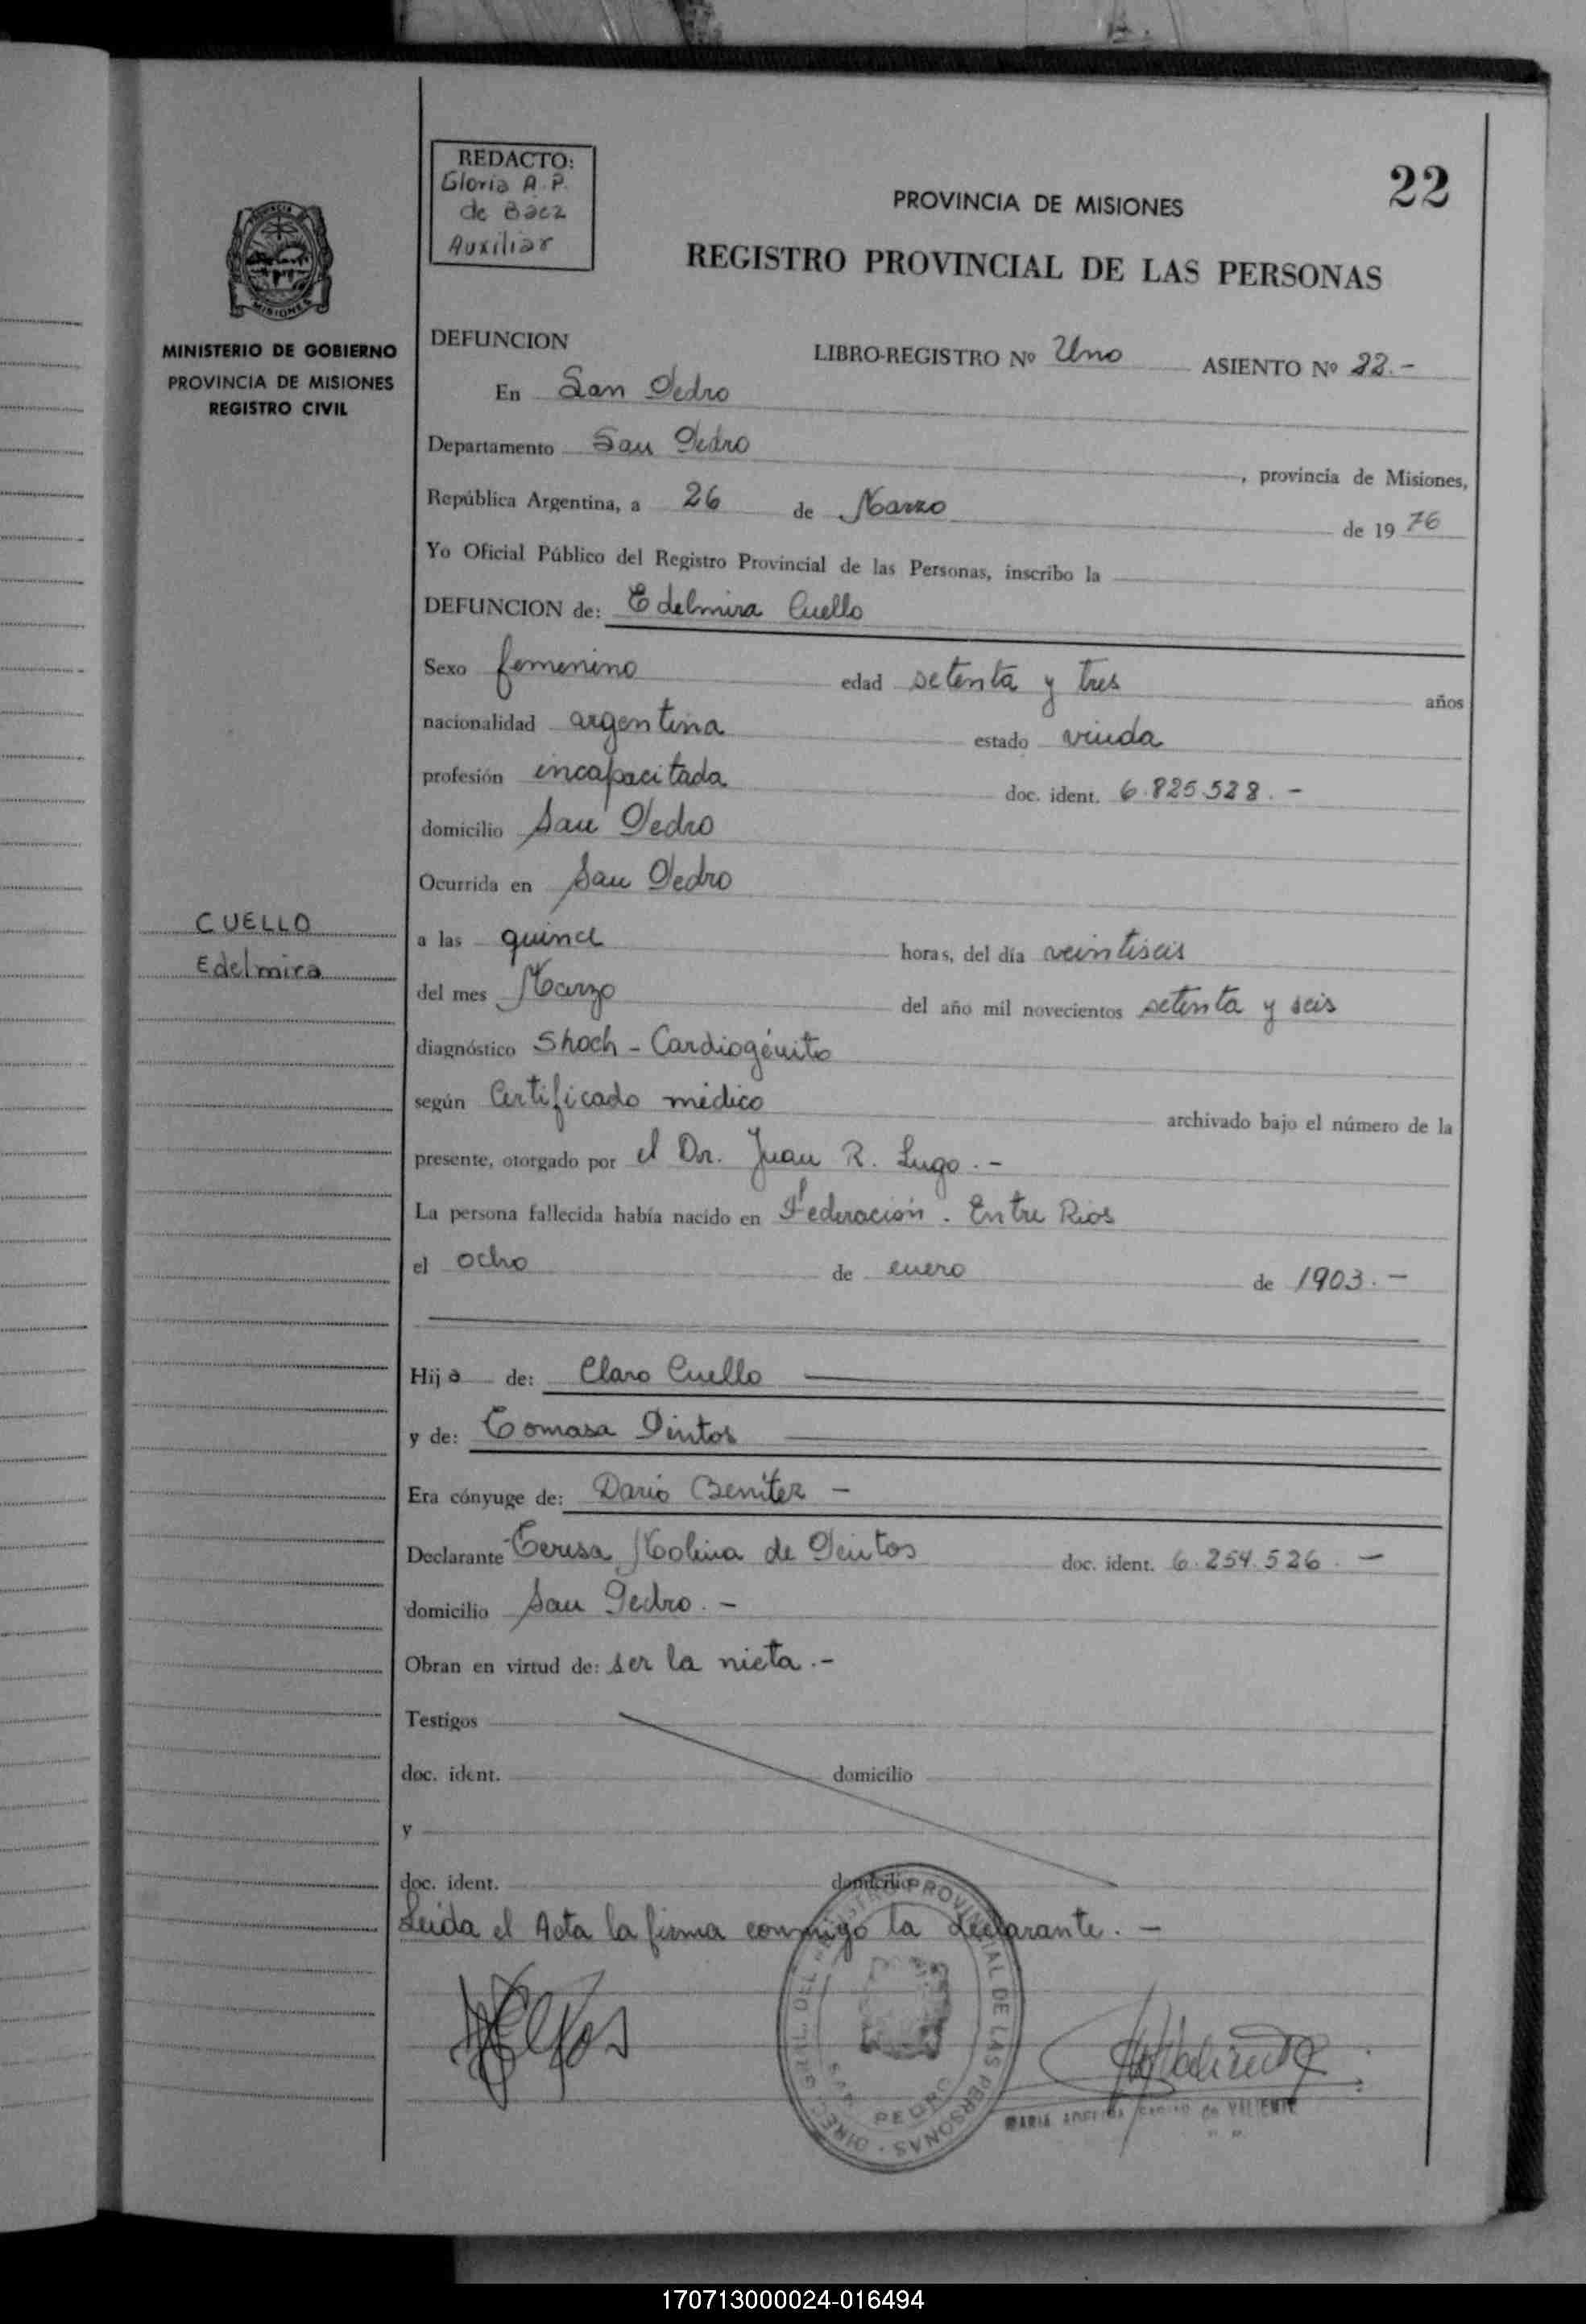 REDACTO:
Gloria A. P.
de Báez
Auxiliar
22
PROVINCIA DE MISIONES
REGISTRO PROVINCIAL DE LAS PERSONAS
MISIONES
MINISTERIO DE GOBIERNO
PROVINCIA DE MISIONES
REGISTRO CIVIL
CUELLO
Edelmira
DEFUNCION LIBRO-REGISTRO Nº Uno ASIENTO Nº 22.-
En San Pedro
Departamento San Pedro , provincia de Misiones,
República Argentina, a 26 de Marzo de 1976
Yo Oficial Público del Registro Provincial de las Personas, inscribo la
DEFUNCION de: Edelmira Cuello
Sexo femenino edad setenta y tres años
nacionalidad argentina estado viuda
profesión incapacitada doc. ident. 6.825.528.-
domicilio San Pedro
Ocurrida en San Pedro
a las quince horas, del día veintiseis
del mes Marzo del año mil novecientos setenta y seis
diagnóstico Shoch - Cardiogénito
según Certificado médico archivado bajo el número de la
presente, otorgado por el Dr. Juan R. Lugo.-
La persona fallecida había nacido en Federación - Entre Rios
el ocho de enero de 1903.-
Hija de: Claro Cuello
y de: Tomasa Pintos
Era cónyuge de: Dario Benítez -
Declarante Teresa Molina de Pintos doc. ident. 6.254.526.-
domicilio San Pedro.-
Obran en virtud de: ser la nieta.-
Testigos
doc. ident. domicilio
y
doc. ident. domicilio
Leida el Acta la firma conmigo la declarante.-
DIREC. GRAL. DEL REGISTRO PROVINCIAL DE LAS PERSONAS
SAN PEDRO
MARIA DE VALIENTE
170713000024-016494